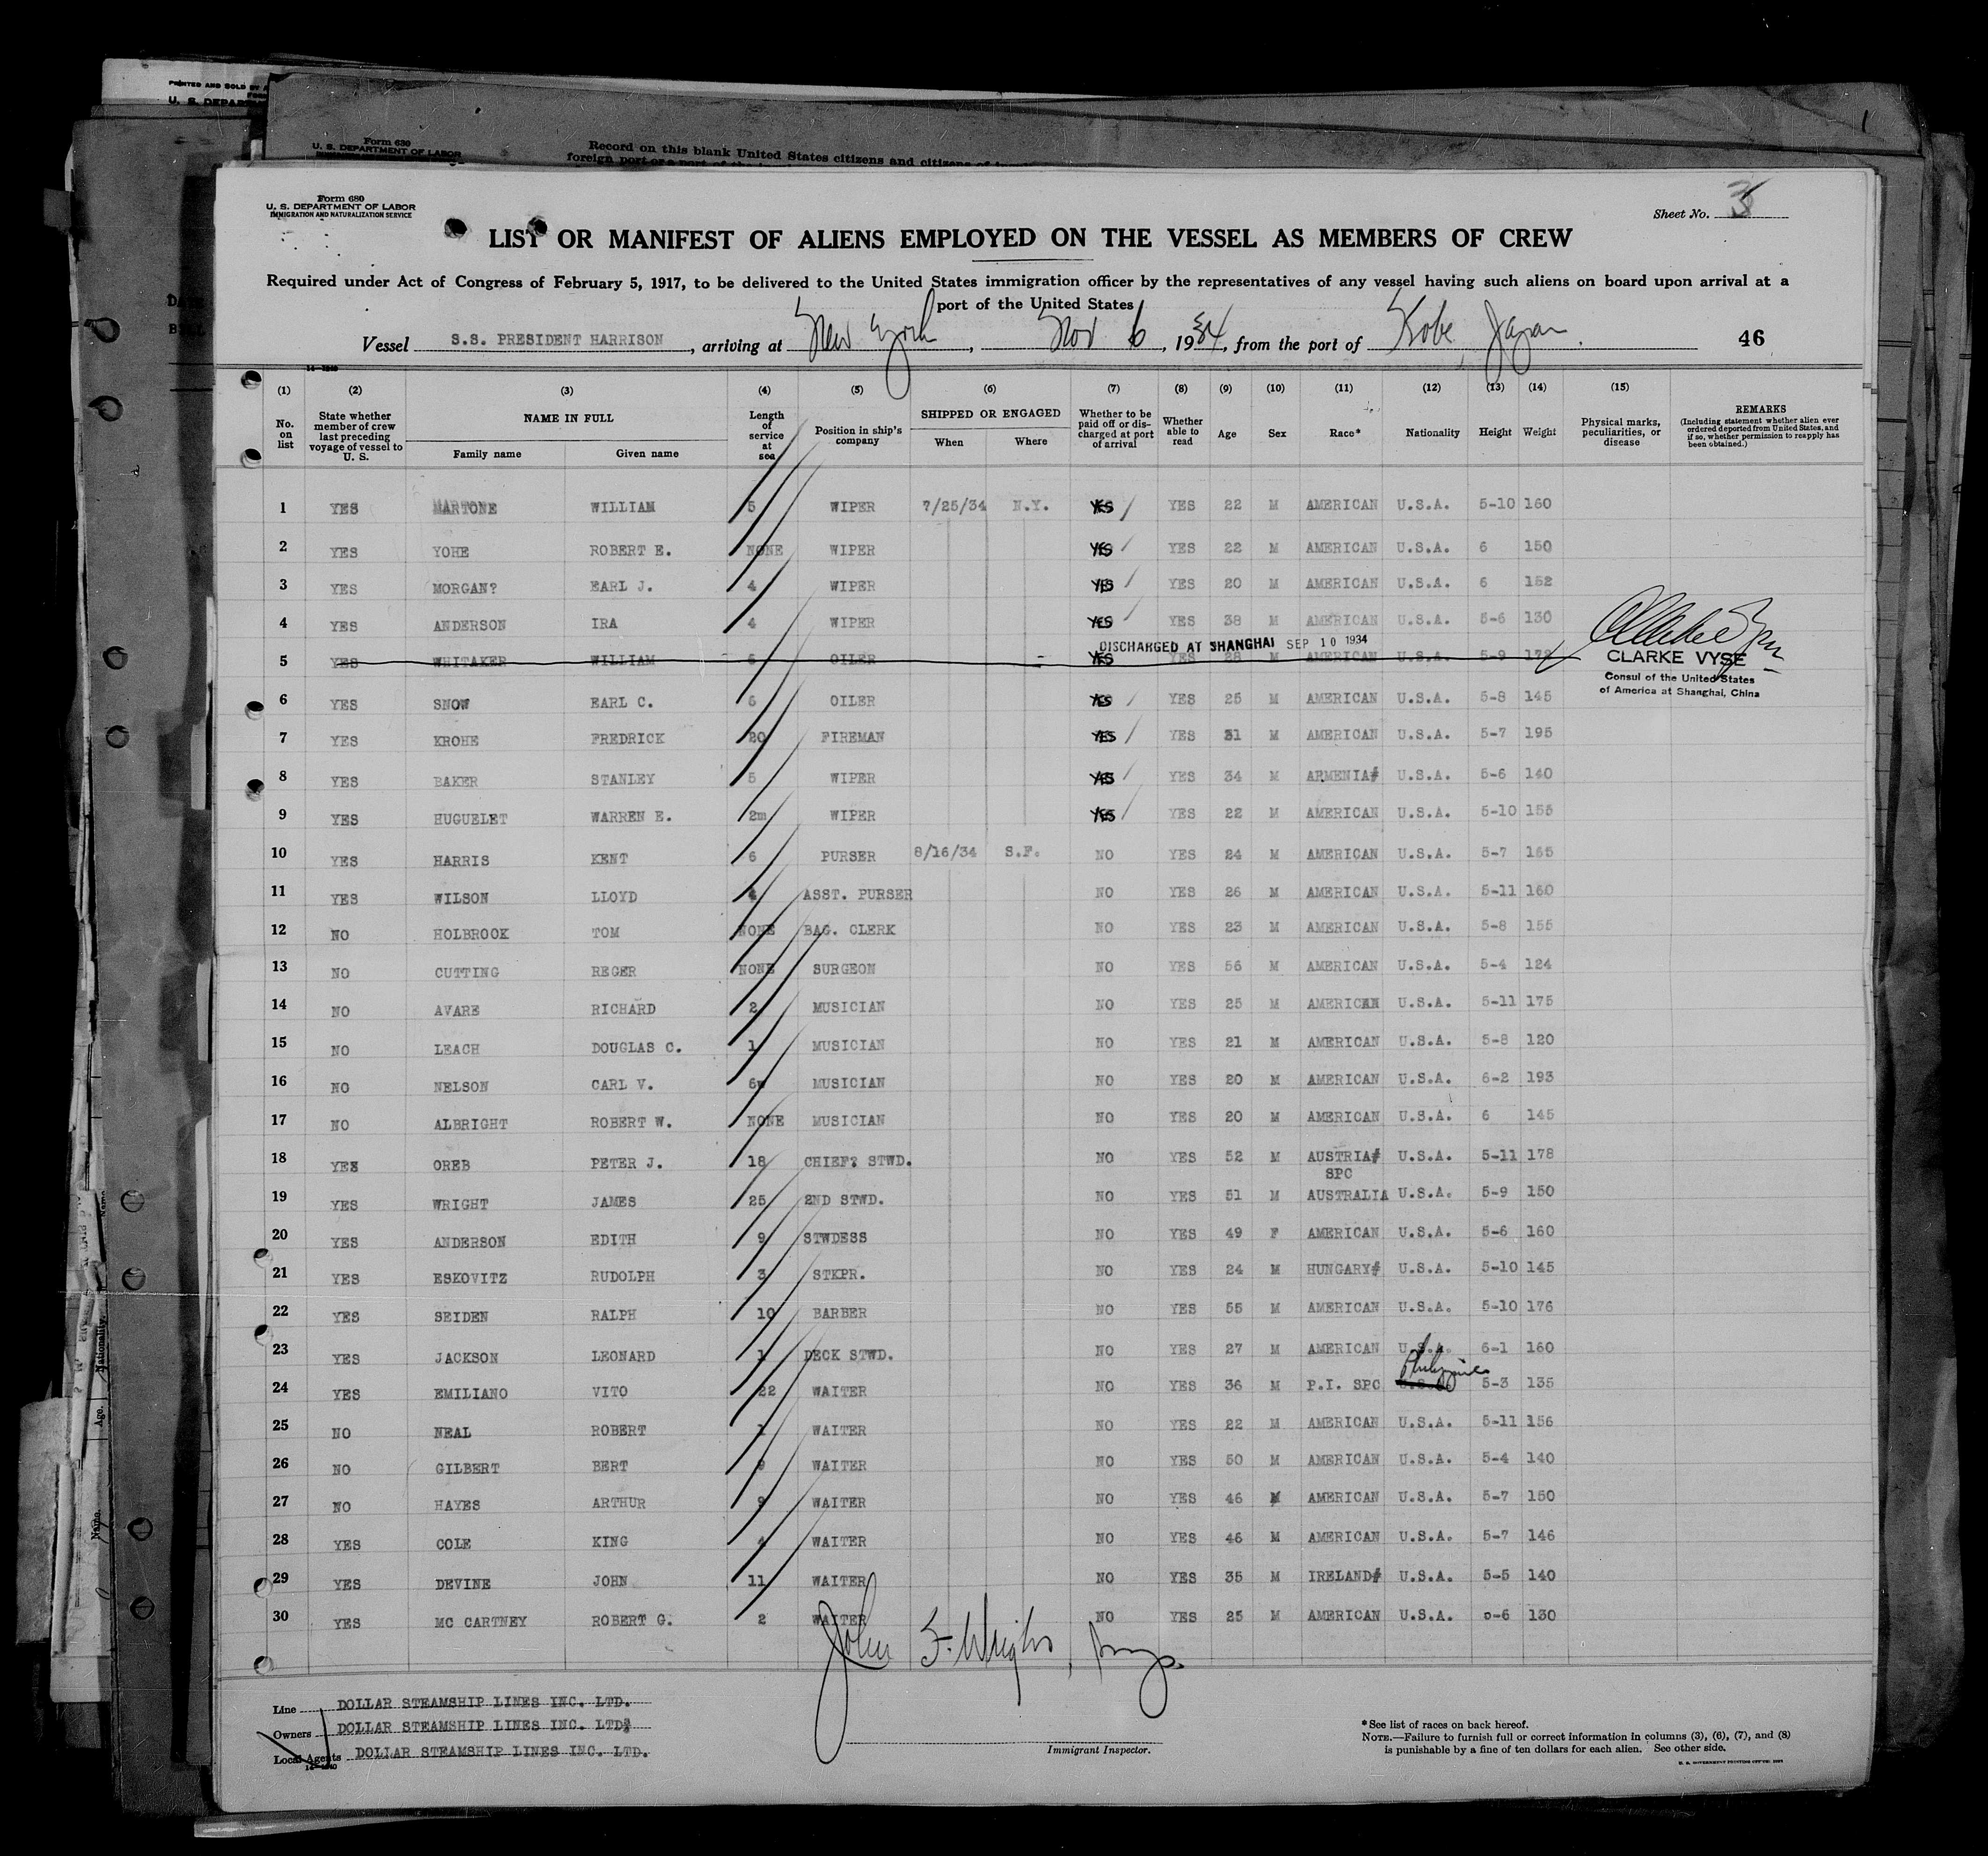 PRINTED AND SOLD BY
U. S. DEPAR
Form 630
U. S. DEPARTMENT OF LABOR
Record on this blank United States citizens and citizens of
foreign port or a port of
Form 680
U. S. DEPARTMENT OF LABOR
IMMIGRATION AND NATURALIZATION SERVICE
Sheet No. 3
LIST OR MANIFEST OF ALIENS EMPLOYED ON THE VESSEL AS MEMBERS OF CREW
Required under Act of Congress of February 5, 1917, to be delivered to the United States immigration officer by the representatives of any vessel having such aliens on board upon arrival at a
port of the United States
Vessel S.S. PRESIDENT HARRISON, arriving at New York, Nov 6, 1934, from the port of Kobe, Japan. 46
(1) (2) (3) (4) (5) (6) (7) (8) (9) (10) (11) (12) (13) (14) (15)
No. on list | State whether member of crew last preceding voyage of vessel to U. S. | NAME IN FULL Family name Given name | Length of service at sea | Position in ship's company | SHIPPED OR ENGAGED When Where | Whether to be paid off or discharged at port of arrival | Whether able to read | Age | Sex | Race* | Nationality | Height | Weight | Physical marks, peculiarities, or disease | REMARKS (Including statement whether alien ever ordered deported from United States, and if so, whether permission to reapply has been obtained.)
1 YES MARTONE WILLIAM 5 WIPER 7/25/34 N.Y. YES YES 22 M AMERICAN U.S.A. 5-10 160
2 YES YOHE ROBERT E. NONE WIPER YES YES 22 M AMERICAN U.S.A. 6 150
3 YES MORGAN? EARL J. 4 WIPER YES YES 20 M AMERICAN U.S.A. 6 152
4 YES ANDERSON IRA 4 WIPER YES YES 38 M AMERICAN U.S.A. 5-6 130
DISCHARGED AT SHANGHAI SEP 10 1934
5 YES WHITAKER WILLIAM 6 OILER YES YES 28 M AMERICAN U.S.A. 5-9 178
CLARKE VYSE
Consul of the United States
of America at Shanghai, China
6 YES SNOW EARL C. 6 OILER YES YES 25 M AMERICAN U.S.A. 5-8 145
7 YES KROHE FREDRICK 20 FIREMAN YES YES 31 M AMERICAN U.S.A. 5-7 195
8 YES BAKER STANLEY 5 WIPER YES YES 34 M ARMENIA# U.S.A. 5-6 140
9 YES HUGUELET WARREN E. 2m WIPER YES YES 22 M AMERICAN U.S.A. 5-10 155
10 YES HARRIS KENT 6 PURSER 8/16/34 S.F. NO YES 24 M AMERICAN U.S.A. 5-7 165
11 YES WILSON LLOYD 4 ASST. PURSER NO YES 26 M AMERICAN U.S.A. 5-11 160
12 NO HOLBROOK TOM NONE BAG. CLERK NO YES 23 M AMERICAN U.S.A. 5-8 155
13 NO CUTTING REGER NONE SURGEON NO YES 56 M AMERICAN U.S.A. 5-4 124
14 NO AVARE RICHARD 2 MUSICIAN NO YES 25 M AMERICAN U.S.A. 5-11 175
15 NO LEACH DOUGLAS C. 1 MUSICIAN NO YES 21 M AMERICAN U.S.A. 5-8 120
16 NO NELSON CARL V. 6w MUSICIAN NO YES 20 M AMERICAN U.S.A. 6-2 193
17 NO ALBRIGHT ROBERT W. NONE MUSICIAN NO YES 20 M AMERICAN U.S.A. 6 145
18 YES OREB PETER J. 18 CHIEF? STWD. NO YES 52 M AUSTRIA# U.S.A. 5-11 178
SPC
19 YES WRIGHT JAMES 25 2ND STWD. NO YES 51 M AUSTRALIA U.S.A. 5-9 150
20 YES ANDERSON EDITH 9 STWDESS NO YES 49 F AMERICAN U.S.A. 5-6 160
21 YES ESKOVITZ RUDOLPH 3 STKPR. NO YES 24 M HUNGARY# U.S.A. 5-10 145
22 YES SEIDEN RALPH 10 BARBER NO YES 55 M AMERICAN U.S.A. 5-10 176
23 YES JACKSON LEONARD 1 DECK STWD. NO YES 27 M AMERICAN U.S.A. 6-1 160
Philippine
24 YES EMILIANO VITO 22 WAITER NO YES 36 M P.I. SPC U.S.A. 5-3 135
25 NO NEAL ROBERT 1 WAITER NO YES 22 M AMERICAN U.S.A. 5-11 156
26 NO GILBERT BERT 9 WAITER NO YES 50 M AMERICAN U.S.A. 5-4 140
27 NO HAYES ARTHUR 9 WAITER NO YES 46 M AMERICAN U.S.A. 5-7 150
28 YES COLE KING 4 WAITER NO YES 46 M AMERICAN U.S.A. 5-7 146
29 YES DEVINE JOHN 11 WAITER NO YES 35 M IRELAND# U.S.A. 5-5 140
30 YES MC CARTNEY ROBERT G. 2 WAITER NO YES 25 M AMERICAN U.S.A. 5-6 130
John F. Wright,
Line DOLLAR STEAMSHIP LINES INC. LTD.
Owners DOLLAR STEAMSHIP LINES INC. LTD.
Local Agents DOLLAR STEAMSHIP LINES INC. LTD.
Immigrant Inspector.
*See list of races on back hereof.
NOTE.—Failure to furnish full or correct information in columns (3), (6), (7), and (8)
is punishable by a fine of ten dollars for each alien. See other side.